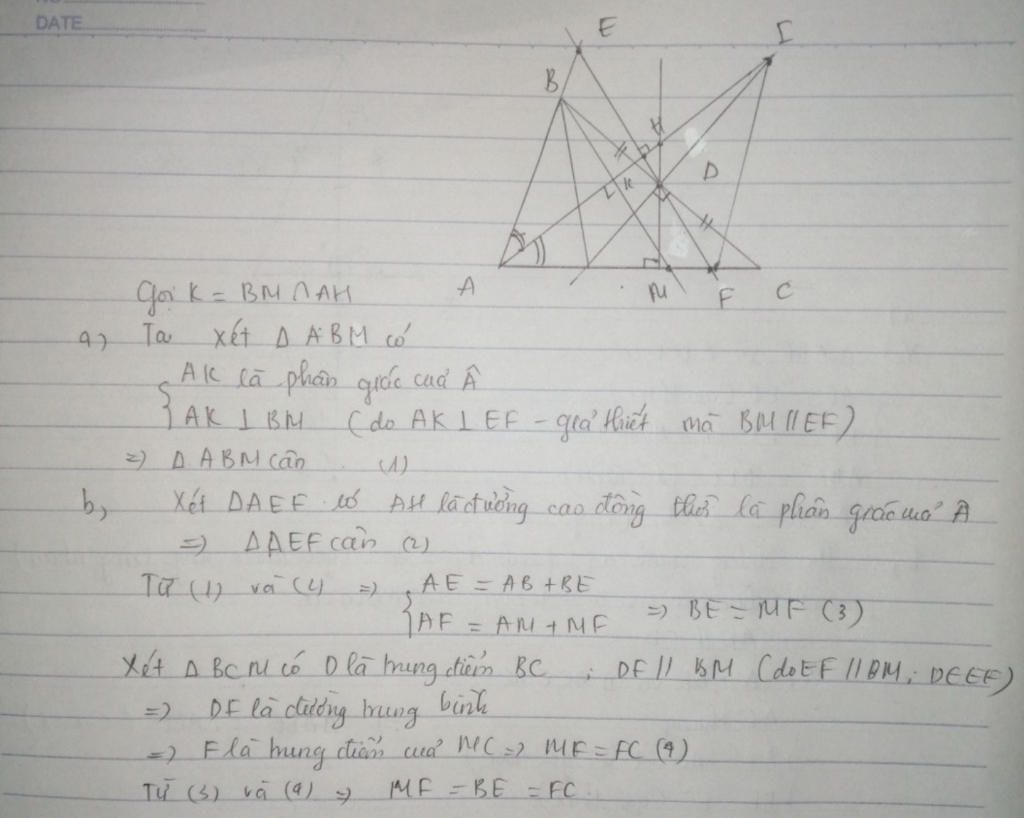 DATE
E
I
B
H
K
D
A
M
F
C
Gọi K = BM ∩ AH
a, Ta xét Δ ABM có
{ AK là phân giác của Â
AK ⊥ BM (do AK ⊥ EF - giả thiết mà BM // EF)
=> Δ ABM cân (1)
b, Xét ΔAEF có AH là đường cao đồng thời là phân giác của Â
=> ΔAEF cân (2)
Từ (1) và (2) => { AE = AB + BE
AF = AM + MF => BE = MF (3)
Xét Δ BCM có D là trung điểm BC ; DF // BM (do EF // BM ; D ∈ EF)
=> DF là đường trung bình
=> F là trung điểm của MC => MF = FC (4)
Từ (3) và (4) => MF = BE = FC.